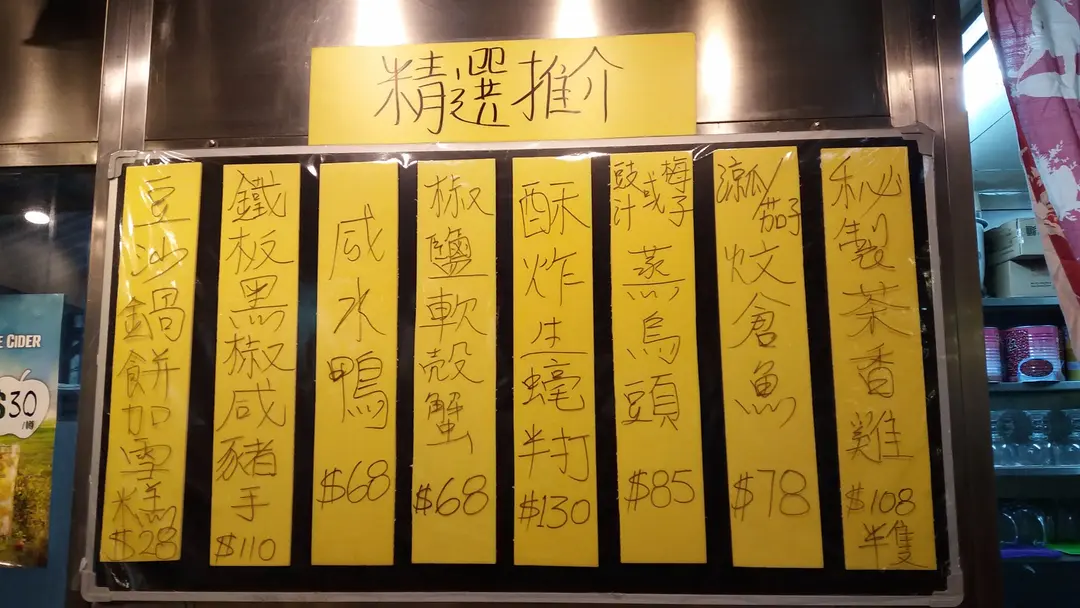 精選推介
秘製茶香雞
$108
半隻
涼瓜/茄子
炆倉魚
$78
豉汁或梅子
蒸烏頭
$85
酥炸生蠔半打
$130
椒鹽軟殼蟹
$68
咸水鴨
$68
鐵板黑椒咸豬手
$110
豆沙鍋餅加雪糕
$28
CIDER
$30